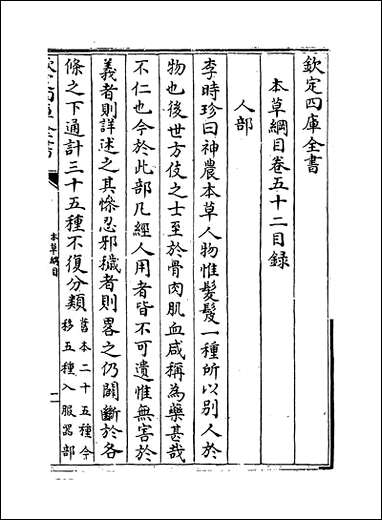 欽定四庫全書
本草綱目卷五十二目録
人部
李時珍曰神農本草人物惟髮髲一種所以别人於
物也後世方伎之士至於骨肉肌血咸稱為藥甚哉
不仁也今於此部凡經人用者皆不可遺惟無害於
義者則詳述之其慘忍邪穢者則畧之仍闢斷於各
條之下通計三十五種不復分類
舊本二十五種今
移五種入服器部
欽定四庫全書
本草綱目